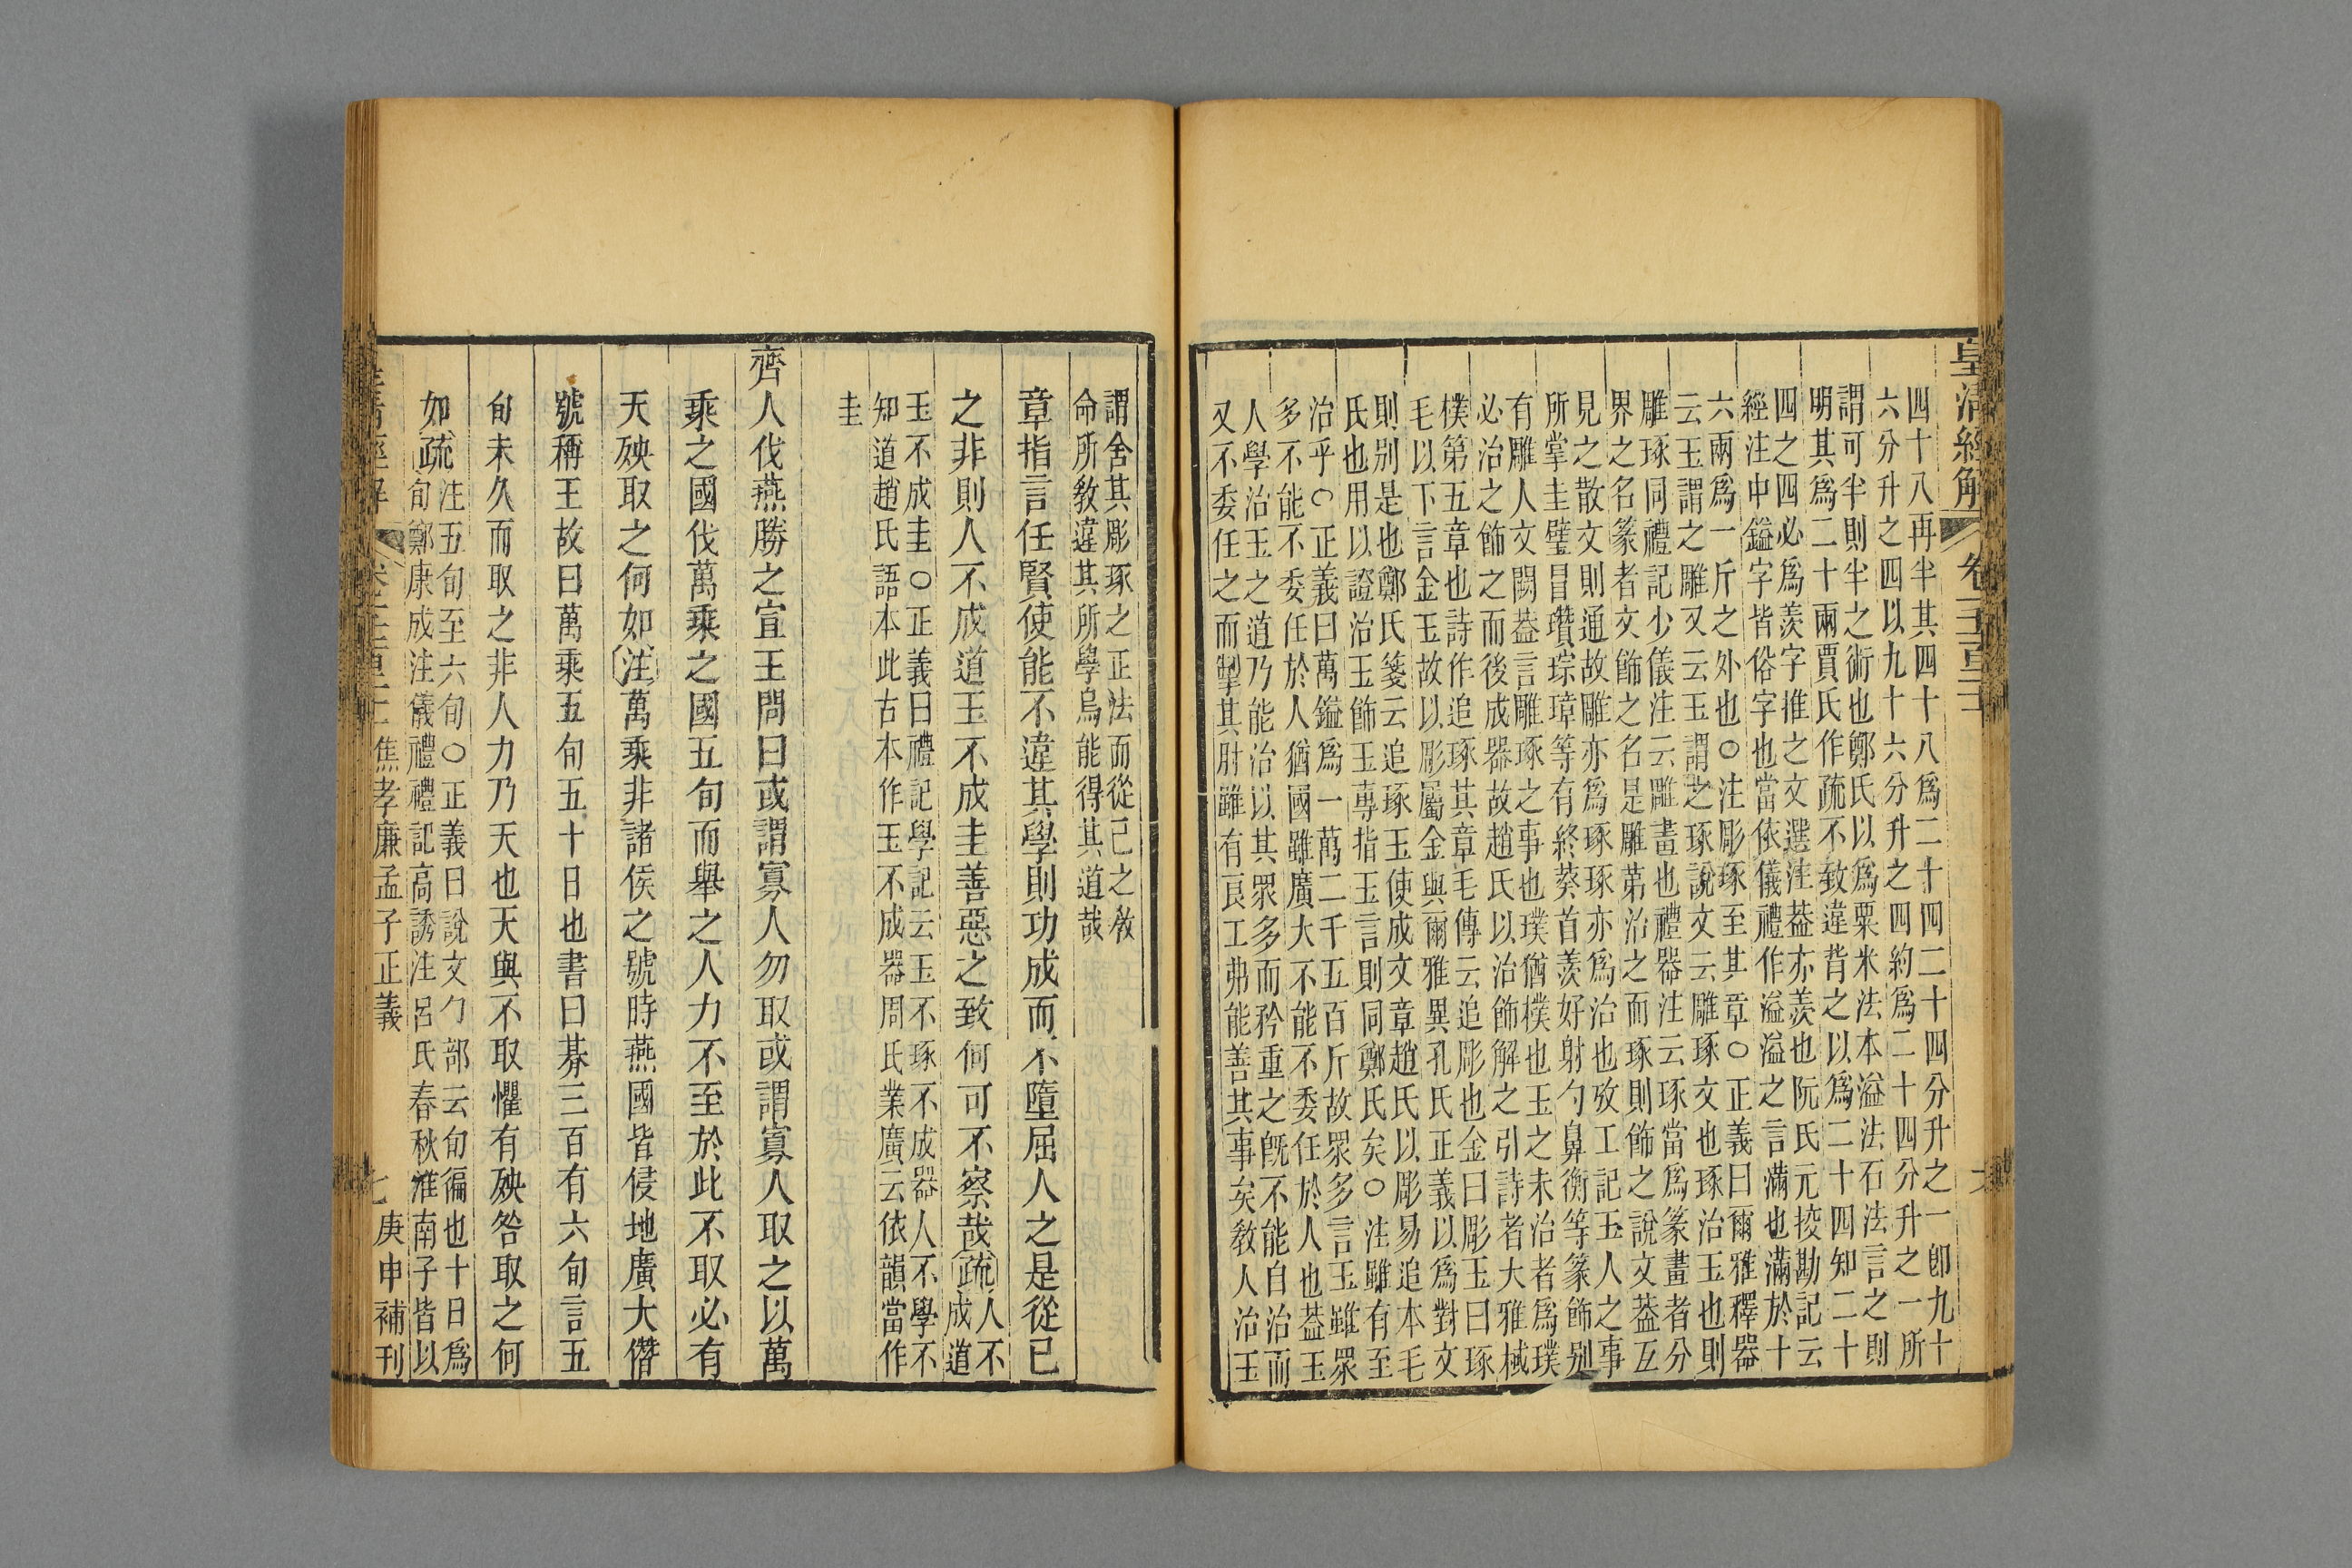 皇清經解
四十八再半其四十八爲二十四二十四分升之一卽九十
六分升之四以九十六分升之四約爲二十四分升之一所
謂可半則半之術也鄭氏以爲粟米法本溢法石法言之則
明其爲二十兩賈氏作疏不致違背之以爲二十四知二十
四之四必爲羨字推之文選注葢亦羨也阮氏元挍勘記云
經注中鎰字皆俗字也當依儀禮作溢溢之言滿也滿於十
六兩爲一斤之外也○注彫琢至其章○正義曰爾雅釋器
云玉謂之雕又云玉謂之琢說文云雕琢文也琢治玉也則
雕琢同禮記少儀注云雕畫也禮器注云琢當爲篆畫者分
界之名篆者文飾之名是雕第治之而琢則飾之說文葢互
見之散文則通故雕亦爲琢琢亦爲治也攷工記玉人之事
所掌圭璧冒瓚琮璋等有終葵首羨好射勺鼻衡等篆飾别
有雕人文闕葢言雕琢之事也璞猶樸也玉之未治者爲璞
必治之飾之而後成器故趙氏以治飾解之引詩者大雅棫
樸第五章也詩作追琢其章毛傳云追彫也金曰彫玉曰琢
毛以下言金玉故以彫屬金與爾雅異孔氏正義以爲對文
則别是也鄭氏箋云追琢玉使成文章趙氏以彫易追本毛
氏也用以證治玉飾玉專指玉言則同鄭氏矣○注雖有至
治乎○正義曰萬鎰爲一萬二千五百斤故眾多言玉雖眾
多不能不委任於人猶國雖廣大不能不委任於人也葢玉
人學治玉之道乃能治以其眾多而矜重之旣不能自治而
又不委任之而掣其肘雖有良工弗能善其事矣敎人治玉
謂舍其彫琢之正法而從己之敎
命所敎違其所學烏能得其道哉
章指言任賢使能不違其學則功成而不墮屈人之是從己
之非則人不成道玉不成圭善惡之致何可不察哉疏人不成道
玉不成圭○正義曰禮記學記云玉不琢不成器人不學不
知道趙氏語本此古本作玉不成器周氏業廣云依韻當作
圭
齊人伐燕勝之宣王問曰或謂寡人勿取或謂寡人取之以萬
乘之國伐萬乘之國五旬而舉之人力不至於此不取必有
天殃取之何如注萬乘非諸侯之號時燕國皆侵地廣大僭
號稱王故曰萬乘五旬五十日也書曰朞三百有六旬言五
旬未久而取之非人力乃天也天與不取懼有殃咎取之何
如疏注五旬至六旬○正義曰說文勹部云旬徧也十日爲
旬鄭康成注儀禮禮記高誘注呂氏春秋淮南子皆以
焦孝廉孟子正義
七
庚申補刊